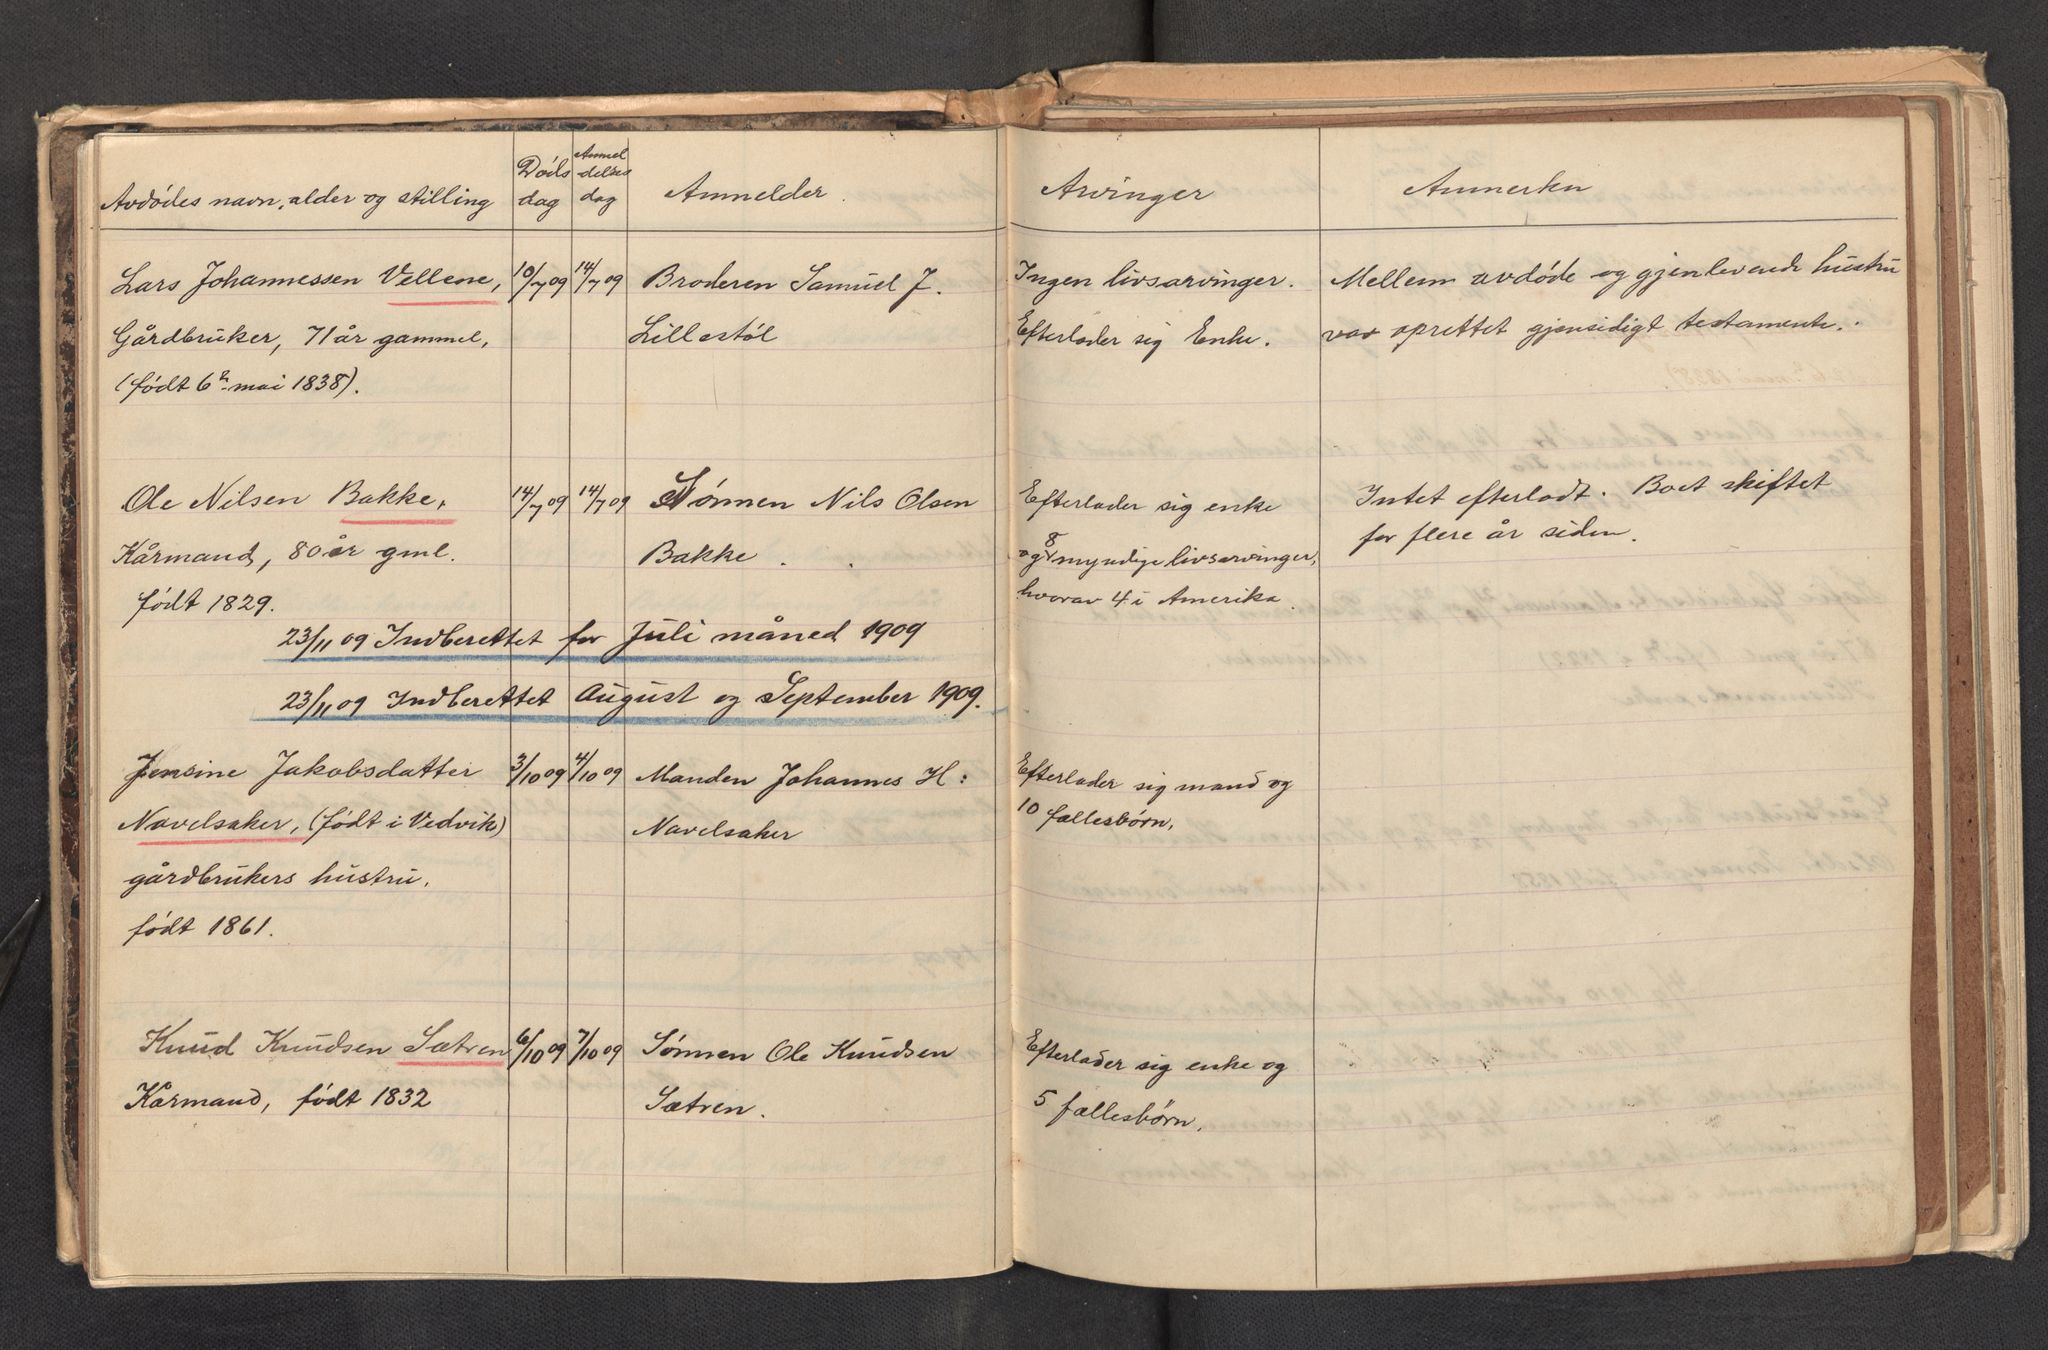 Avdødes navn, alder og stilling
Døds
dag
Anmel
delses
dag
Anmelder.
Arvinger
Anmerkn
Lars Johannessen Vellene,
Gårdbruker, 71 år gammel,
(født 6te mai 1838).
10/7 09
14/7 09
Broderen Samuel J.
Lillestøl
Ingen livsarvinger.
Efterlader sig Enke.
Mellem avdøde og gjenlevende hustru
var oprettet gjensidigt testamente.
Ole Nilsen Bakke,
Kårmand, 80 år gml.
født 1829.
14/7 09
14/7 09
Sønnen Nils Olsen
Bakke.
Efterlader sig enke
og 8 myndige livsarvinger,
hvorav 4 i Amerika.
Intet efterladt. Boet skiftet
for flere år siden.
23/11 09 Indberettet for Juli måned 1909
23/11 09 Indberettet August og September 1909.
Jensine Jakobsdatter
Navelsaker, (født i Vedvik)
gårdbrukers hustru.
født 1861.
3/10 09
4/10 09
Manden Johannes H:
Navelsaker
Efterlader sig mand og
10 fællesbørn.
Knud Knudsen Sætren
Kårmand, født 1832
6/10 09
7/10 09
Sønnen Ole Knudsen
Sætren.
Efterlader sig enke og
5 fællesbørn.